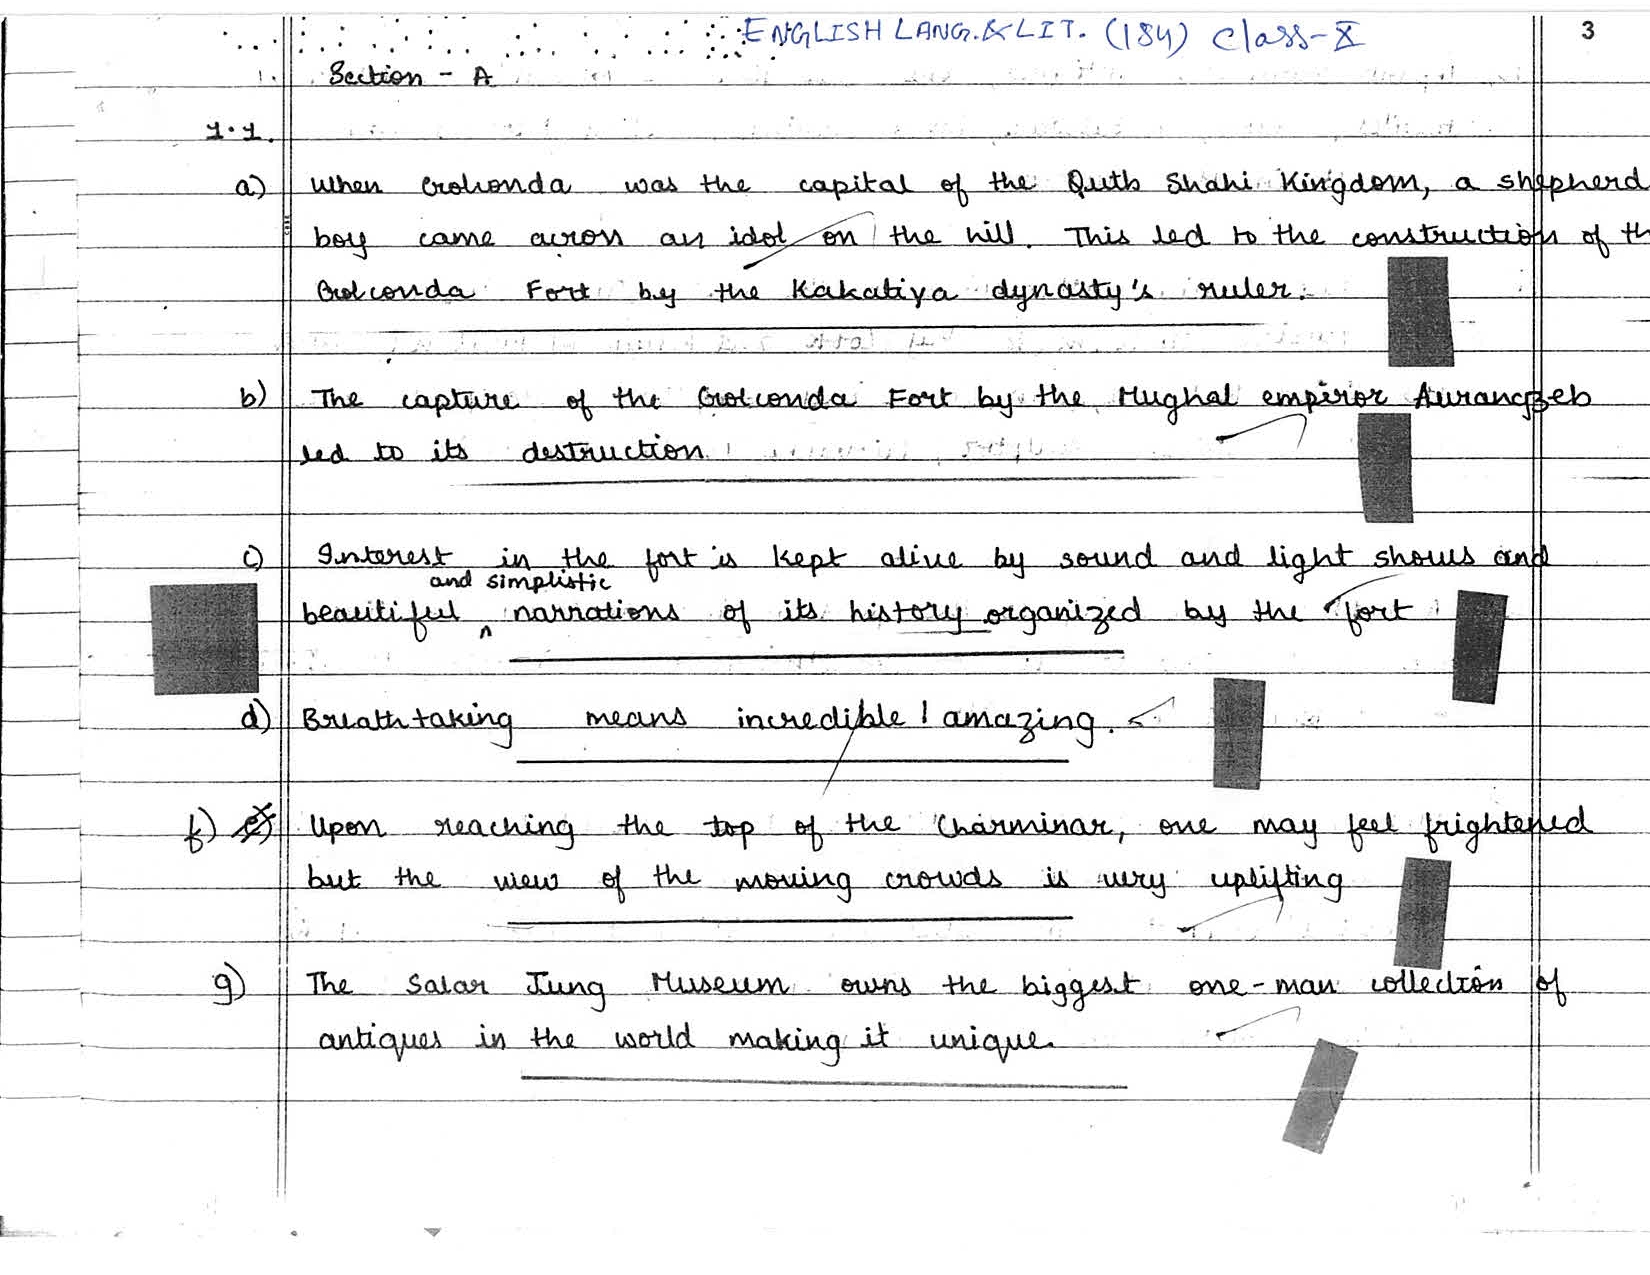 ENGLISH LANG. & LIT. (184) Class-X
3
Section - A
1.1.
a) When Golconda was the capital of the Qutb Shahi Kingdom, a shepherd
boy came across an idol on the hill. This led to the construction of th
Golconda Fort by the Kakatiya dynasty's ruler.
b) The capture of the Golconda Fort by the Mughal empiror Aurangzeb
led to its destruction.
c) Interest in the fort is kept alive by sound and light shows and
and simplistic
beautiful ^ narrations of its history organized by the fort
d) Breathtaking means incredible / amazing.
f) Upon reaching the top of the Charminar, one may feel frightened
but the view of the moving crowds is very uplifting
g) The Salar Jung Museum owns the biggest one-man collection of
antiques in the world making it unique.